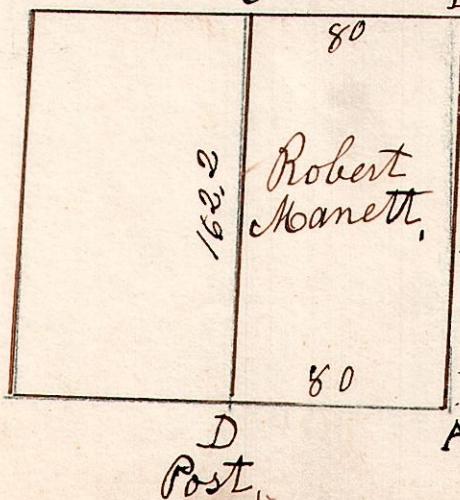 80
162,2
Robert
Manett,
80
D
A
Post,